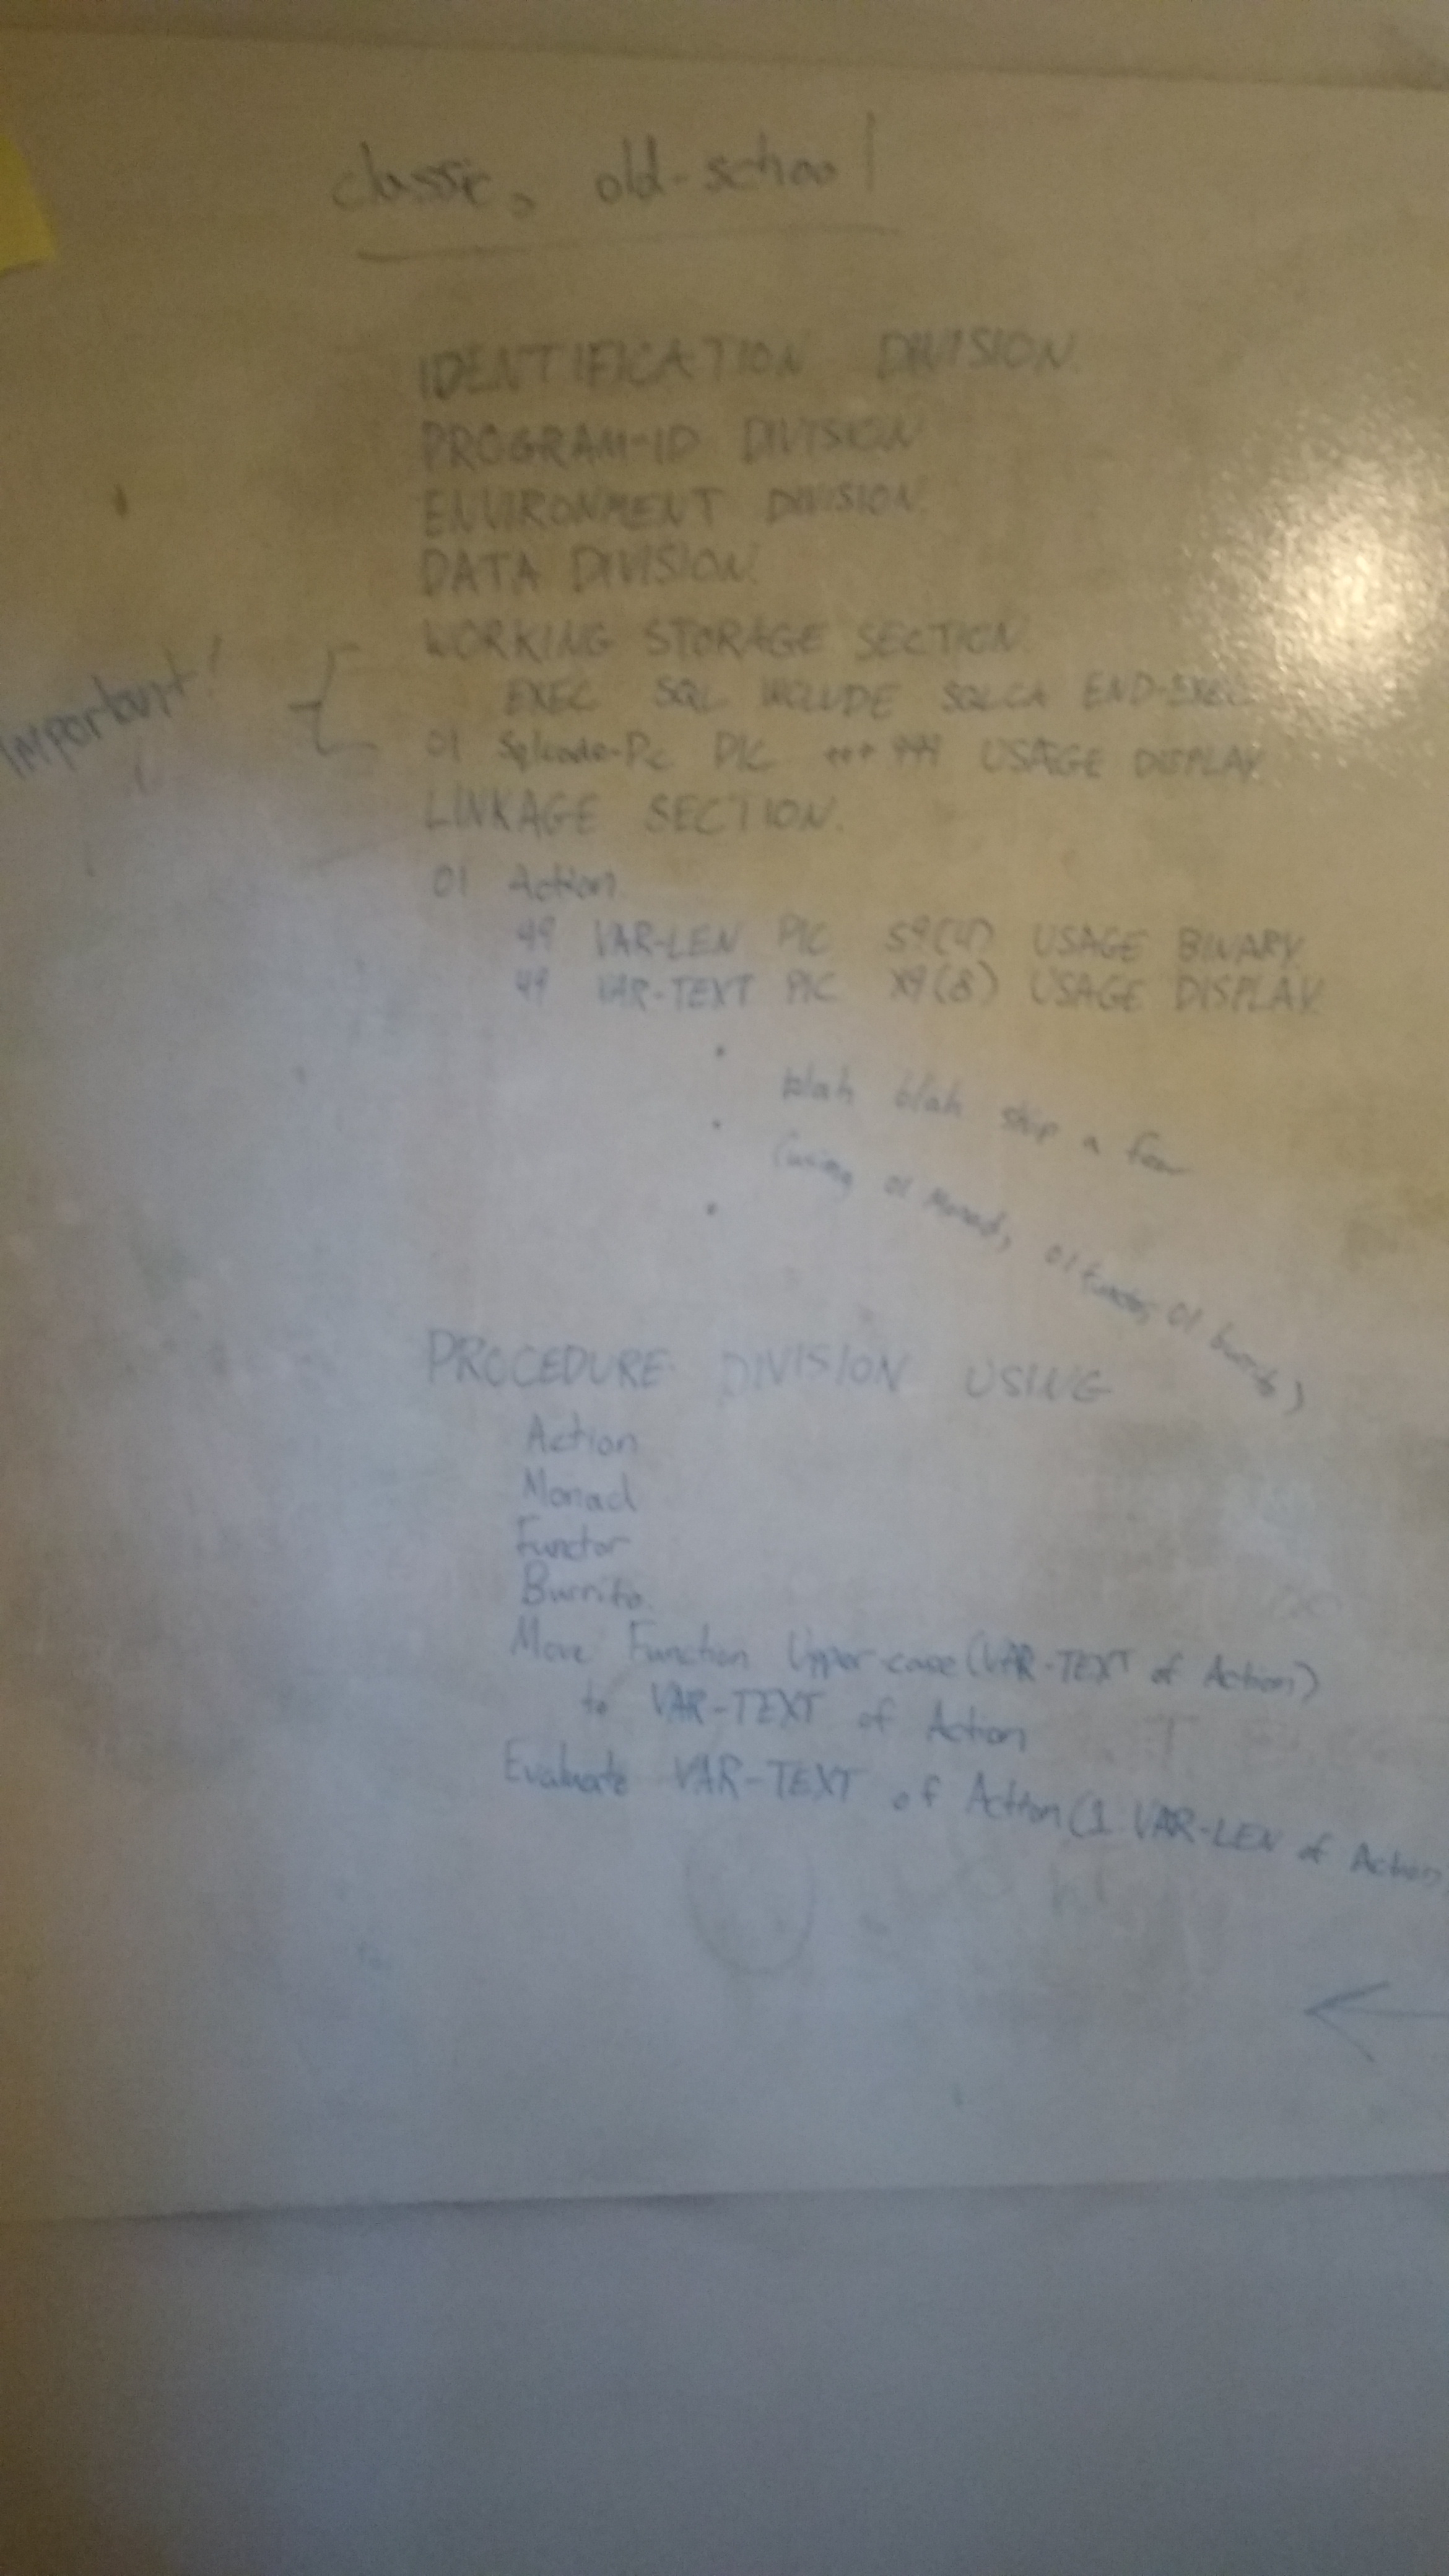 classic, old-school
IDENTIFICATION DIVISION.
PROGRAM-ID DIVISION
ENVIRONMENT DIVISION.
DATA DIVISION.
WORKING STORAGE SECTION.
Important!
EXEC SQL INCLUDE SQLCA END-EXEC
01 PIC USAGE DISPLAY.
LINKAGE SECTION.
01 Action.
49 VAR-LEN PIC S9(4) USAGE BINARY.
49 VAR-TEXT PIC X9(8) USAGE DISPLAY.
blah blah skip a few
(using 01 Monad, 01 functor, 01 burrito)
PROCEDURE DIVISION USING
Action
Monad
Functor
Burrito.
Move Function Upper-case(VAR-TEXT of Action)
to VAR-TEXT of Action
Evaluate VAR-TEXT of Action(1 VAR-LEN of Action